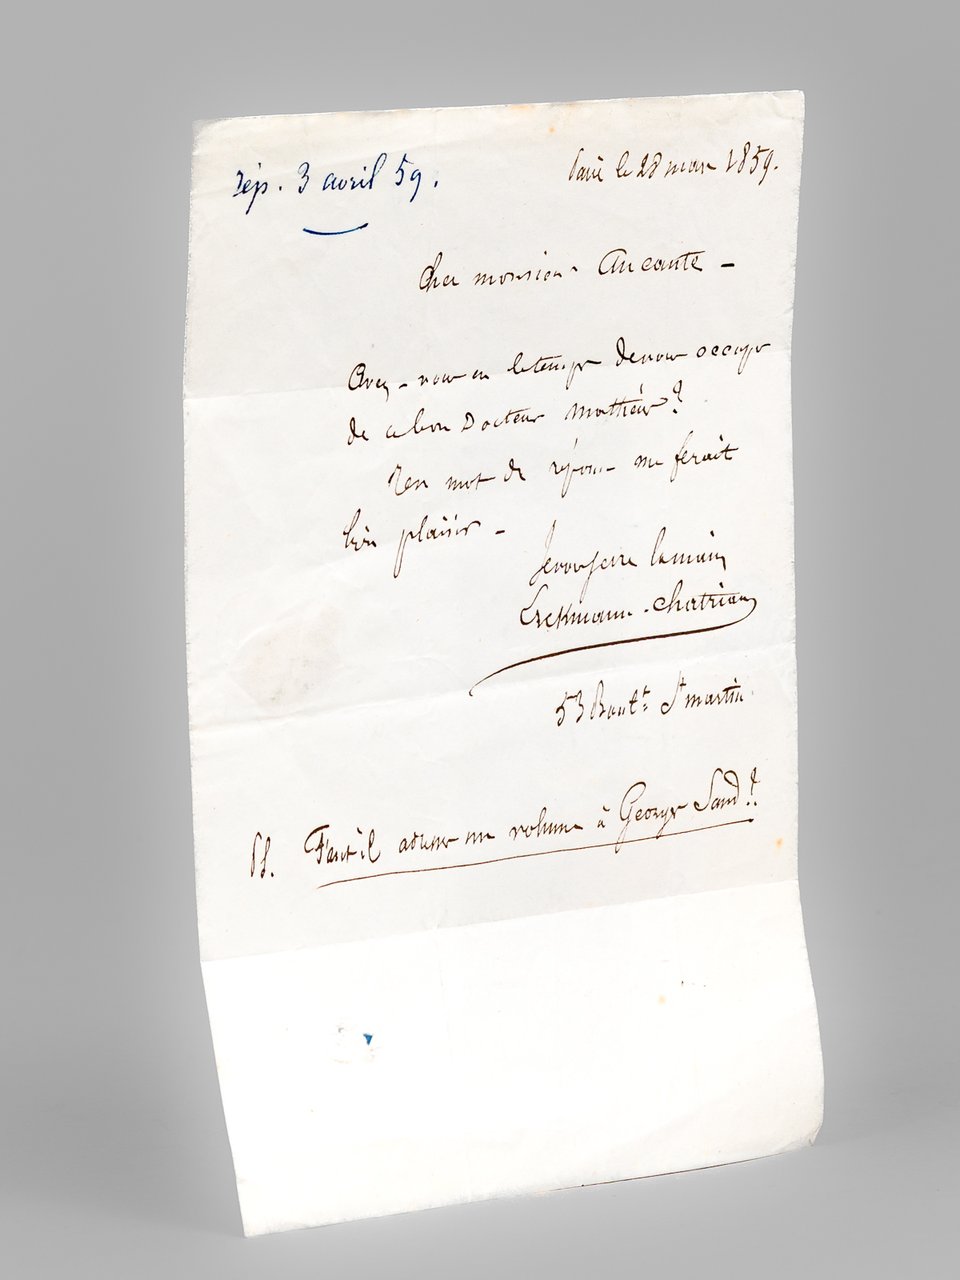 rép. 3 avril 59.
Paris le 28 mars 1859.
Cher monsieur Aucante -
Avez-vous eu le temps de vous occuper
de ce bon Docteur Mathéus?
Un mot de réponse me ferait
bien plaisir -
Je vous serre la main
Erckmann-Chatrian
53 Boul.t St martin
PS. Faut il adresser un volume à George Sand?